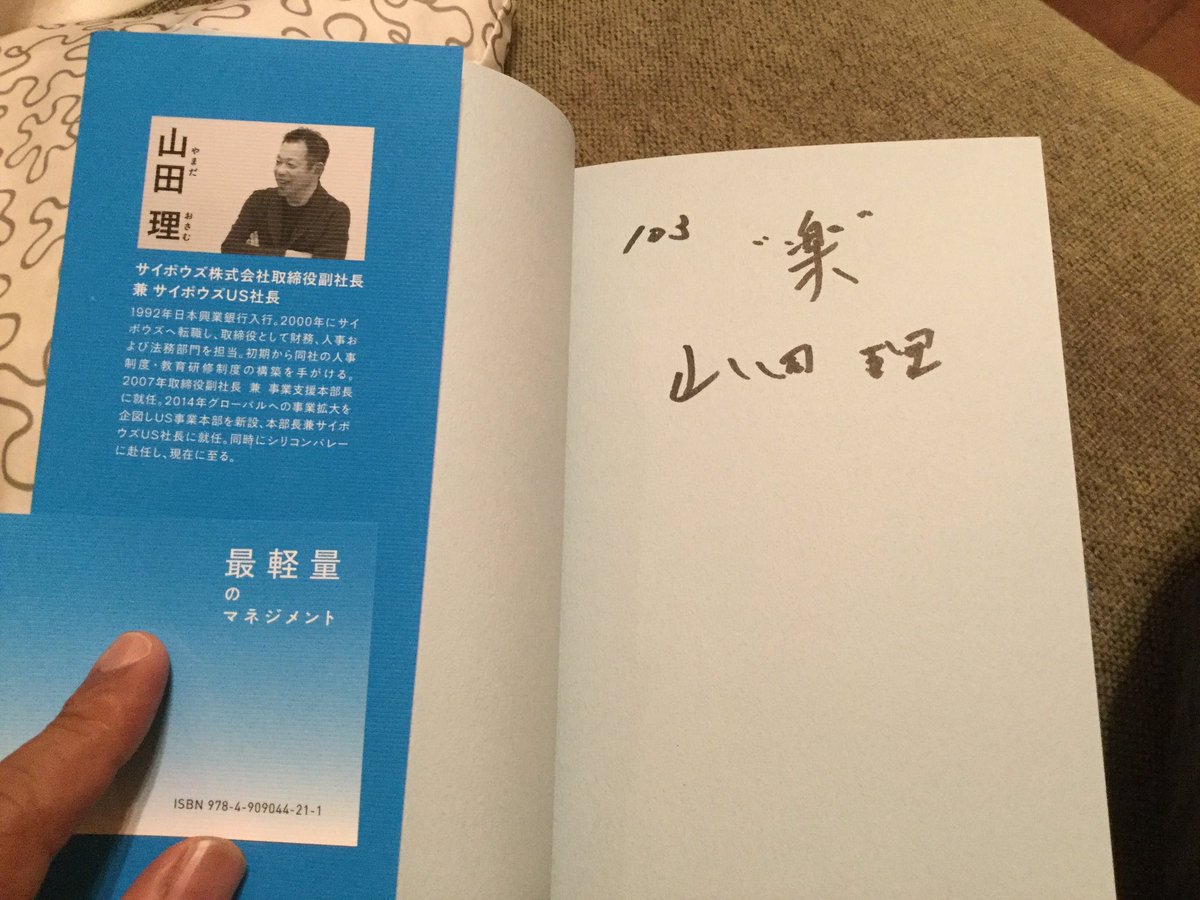 山田 理
やまだ おさむ
サイボウズ株式会社取締役副社長
兼 サイボウズUS社長
1992年日本興業銀行入行。2000年にサイ
ボウズへ転職し、取締役として財務、人事お
よび法務部門を担当。初期から同社の人事
制度・教育研修制度の構築を手がける。
2007年取締役副社長 兼 事業支援本部長
に就任。2014年グローバルへの事業拡大を
企図しUS事業本部を新設、本部長兼サイボ
ウズUS社長に就任。同時にシリコンバレー
に赴任し、現在に至る。
最軽量
の
マネジメント
ISBN 978-4-909044-21-1
103 "楽"
山田 理